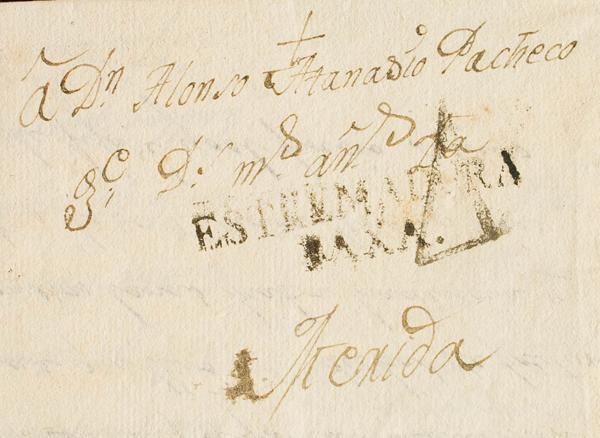 A Dn Alonso Atanasio Pacheco
gc. Ds. ms. ams.
ESTREMADURA
BAXA.
Merida